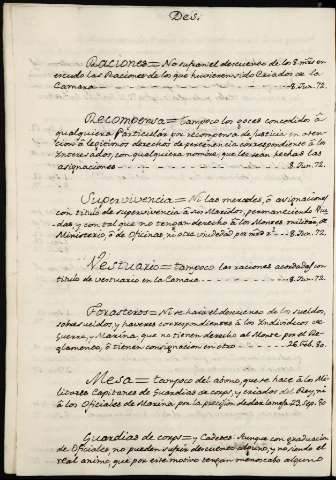 Des.
Raciones = No sufran el descuento de los 8. mrs. en
escudo las Raciones de los que huvieren sido Criados de la
Camara - - - 8. Jun. 72.
Recompensa = tampoco los goces concedidos à
qualquiera Particular por recompensa de justicia en aten-
cion à legitimos derechos de pertenencia correspondiente à los
Interesados, con qualquiera nombre, que les sean hechas las
asignaciones - - - 8. Jun. 72.
Supervivencia = Ni las mercedes, ò asignaciones
con titulo de supervivencia à sus Maridos, permaneciendo Viu-
das, y con tal que no tengan derecho à los Montes militar, de
Ministerio, ò de Oficinas, ni otra viudedad por - - - 8. Jun. 72.
Vestuario = tampoco las raciones acordadas con
titulo de vestuario en la Camara - - - 8. Jun. 72.
Forasteros = Ni se hará el descuento de los sueldos,
sobresueldos, y haveres correspondientes à los Individuos de
Guerra, y Marina, que no tienen derecho al Monte por el Re-
glamento, ò tienen consignacion en otro - - - 26. Feb. 80.
Mesa = tampoco del abono, que se hace à los Mi-
litares Capitanes de Guardias de corps, y criados del Rey, ni
à los Oficiales de Marina, por la precision de dar la mesa 23. Sep. 80
Guardias de corps = y Cadetes. Aunque con graduacion
de Oficiales, no pueden sufrir descuento alguno, y no siendo el
real animo, que por este motivo tengan menoscabo alguno